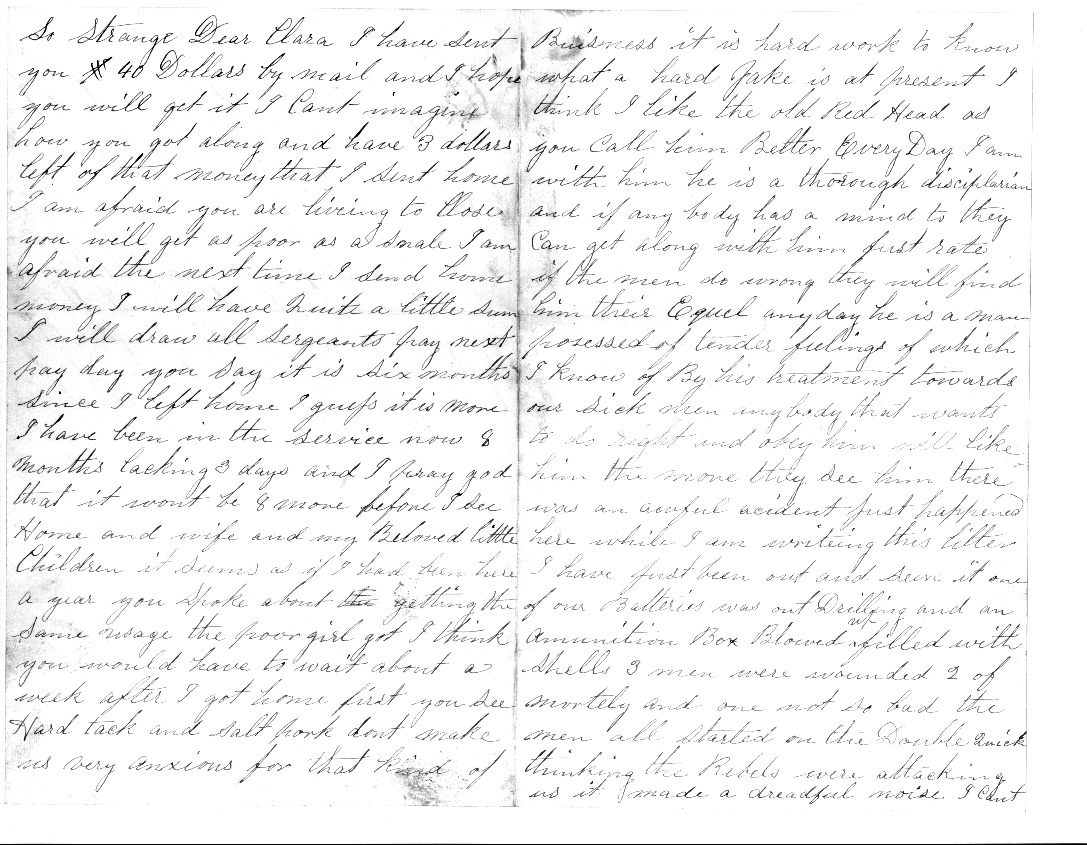 So strange Dear Clara I have sent
you 40 Dollars by mail and I hope
you will get it I Cant imagine
how you got along and have 3 dollars
left of that money that I sent home
I am afraid you are living to Close
you will get as poor as a snale I am
afraid the next time I send home
money I will have Quite a little sum
I will draw all sergeants pay next
pay day you say it is six months
since I left home I guess it is more
I have been in the service now 8
months lacking 3 days and I pray god
that it wont be 8 more before I see
Home and wife and my Beloved little
Children it seems as if I had been here
a year you spoke about the getting the
same usage the poor girl got I think
you would have to wait about a
week after I got home first you see
Hard tack and salt pork dont make
us very anxious for that kind of
Buisness it is hard work to know
what a hard Jake is at present I
think I like the old Red Head as
you Call him Better Every Day I am
with him he is a thorough disciplarian
and if any body has a mind to they
Can get along with him first rate
if the men do wrong they will find
him their Equel anyday he is a man
posessed of tender feelings of which
I know of By his treatment towards
our sick men anybody that wants
to do right and obey him will like
him the more they see him there
was an awful acident just happened
here while I am writeing this letter
I have just been out and seen it one
of our Batteries was out Drilling and an
amunition Box Blowed up filled with
shells 3 men were wounded 2 of
mortely and one not so bad the
men all started on the Double Quick
thinking the Rebels were attacking
us it made a dreadful noise I Cant